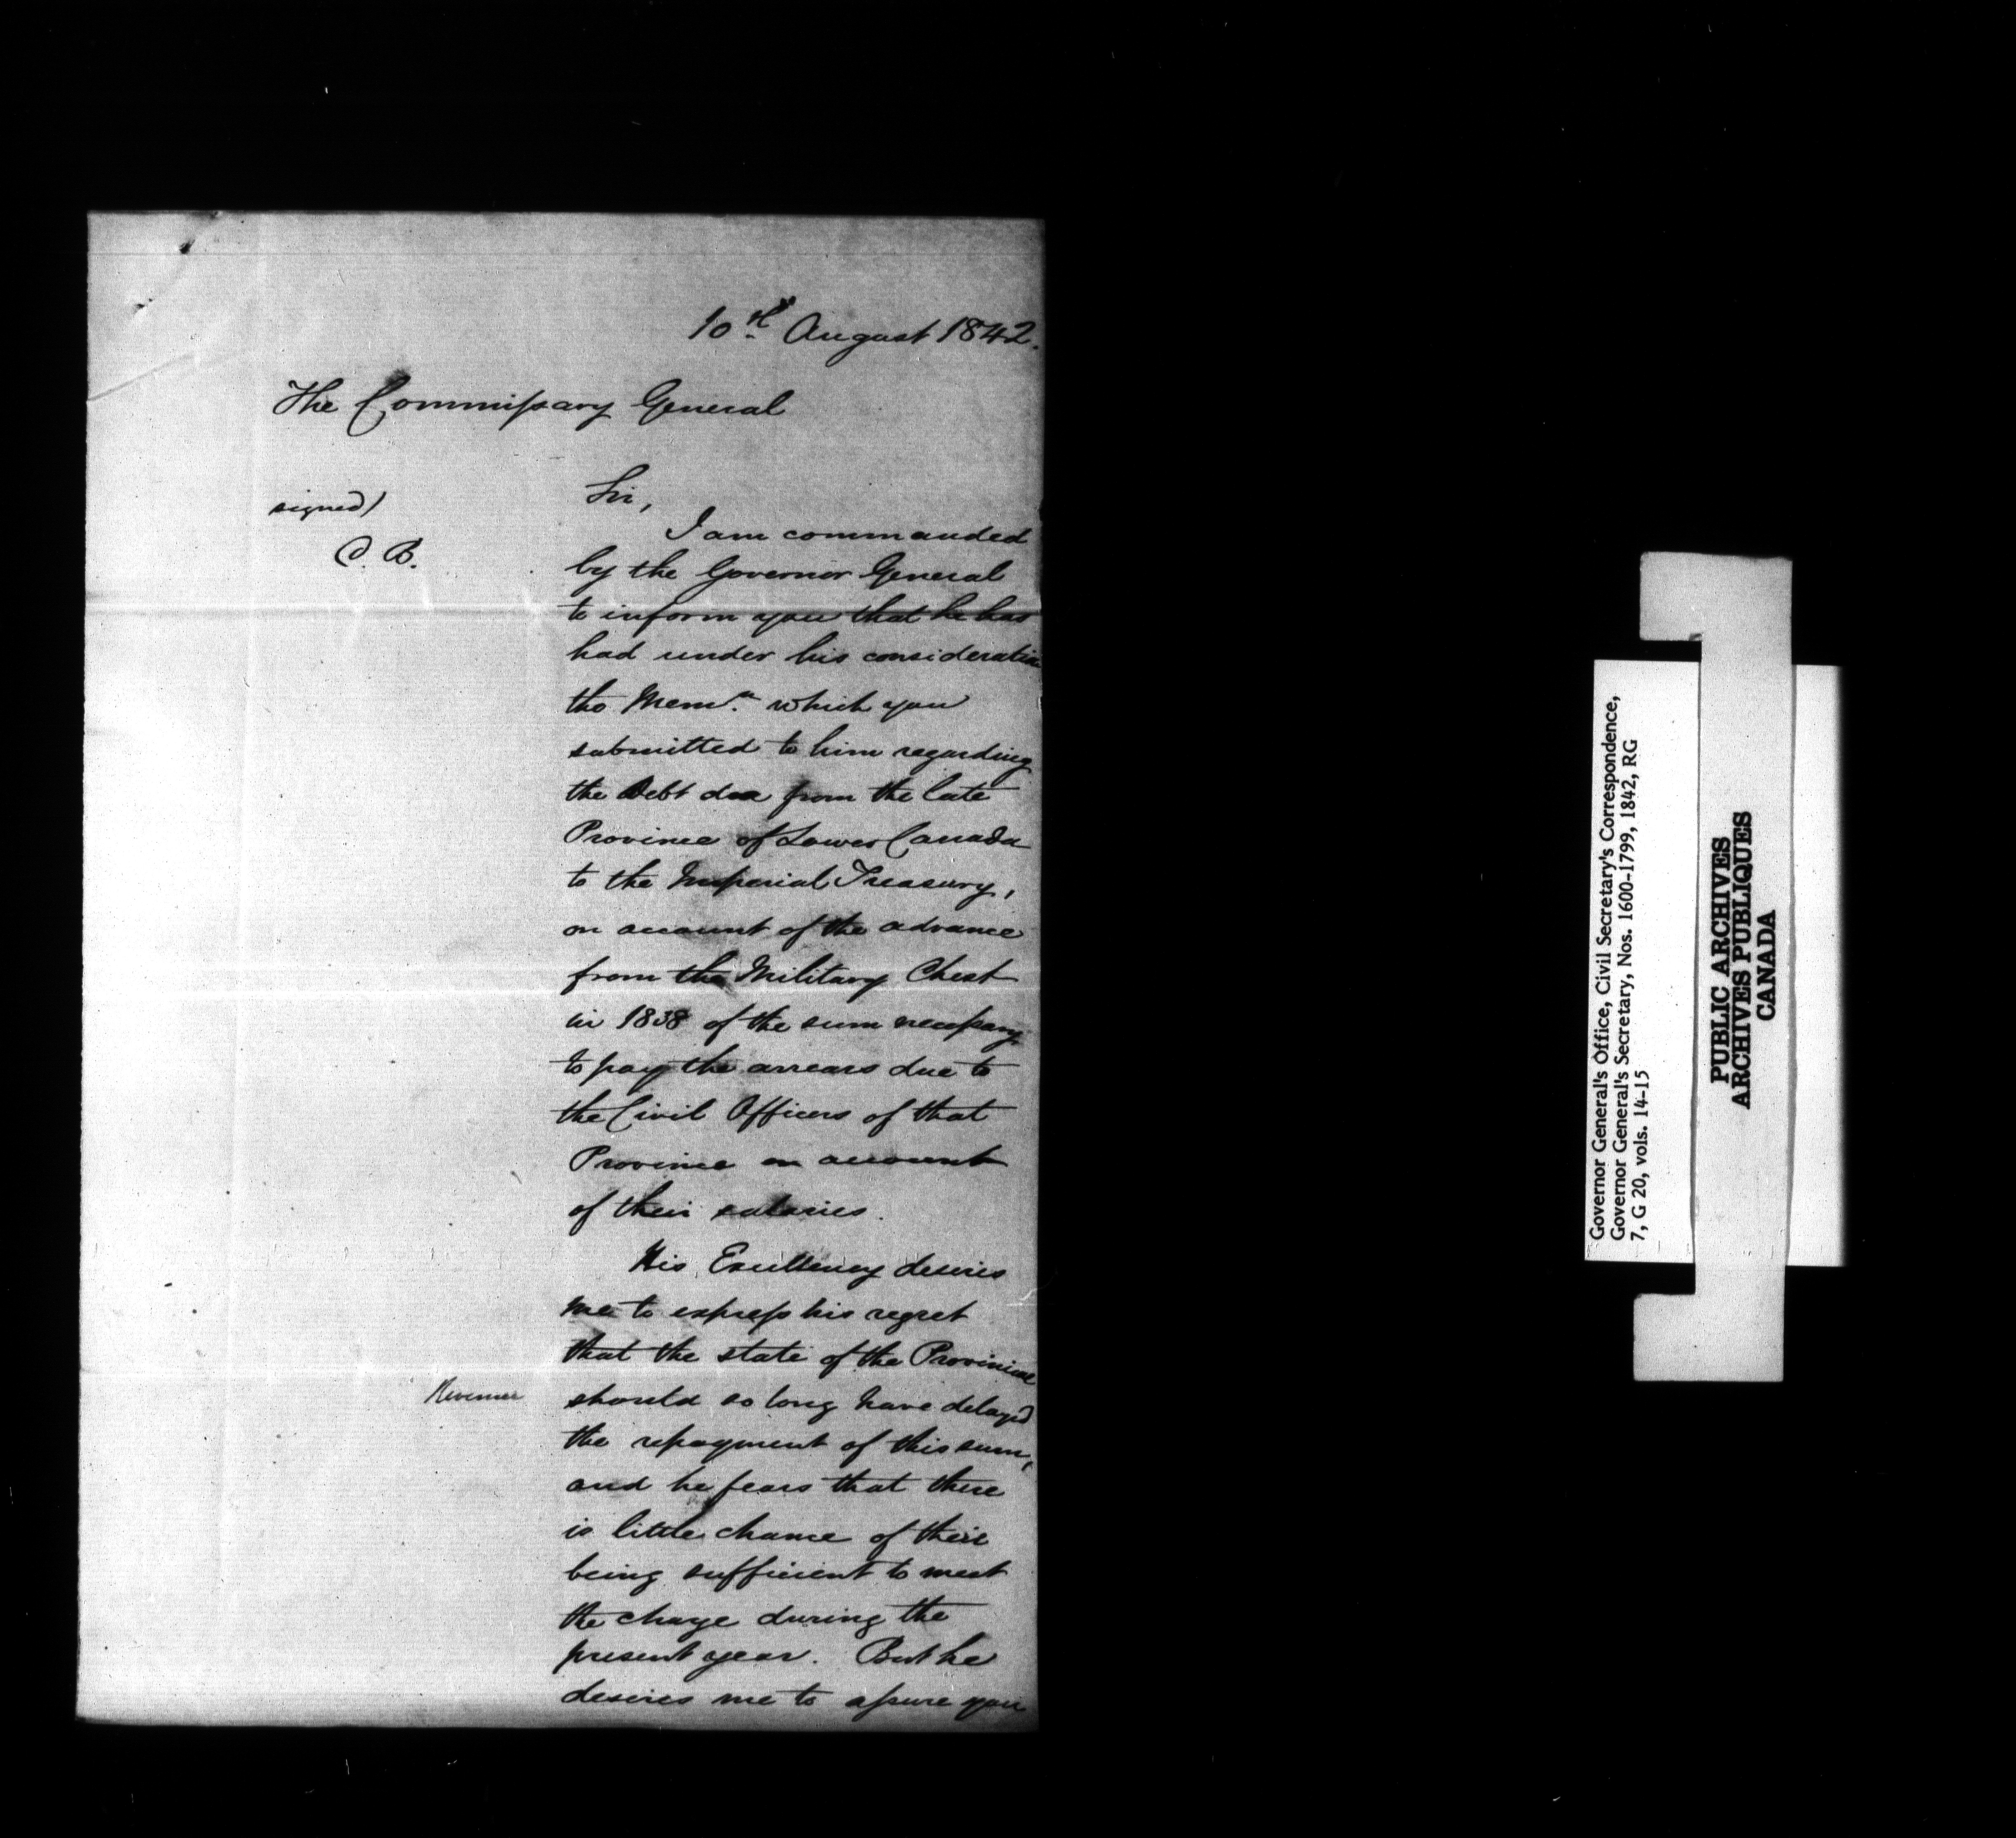 10th August 1842.
The Commissary General
signed)
C. B.
Sir,
I am commanded
by the Governor General
to inform you that he has
had under his consideration
the Memm. which you
submitted to him regarding
the Debt due from the late
Province of Lower Canada
to the Imperial Treasury,
on account of the advance
from the Military Chest
in 1838 of the sum necessary
to pay the arrears due to
the Civil Officers of that
Province on account
of their salaries.
His Excellency desires
me to express his regret
that the state of the Provincial
Revenues
should so long have delayed
the repayment of this sum,
and he fears that there
is little chance of their
being sufficient to meet
the charge during the
present year. But he
desires me to assure you
Governor General's Office, Civil Secretary's Correspondence,
Governor General's Secretary, Nos. 1600-1799, 1842, RG
7, G 20, vols. 14-15
PUBLIC ARCHIVES
ARCHIVES PUBLIQUES
CANADA